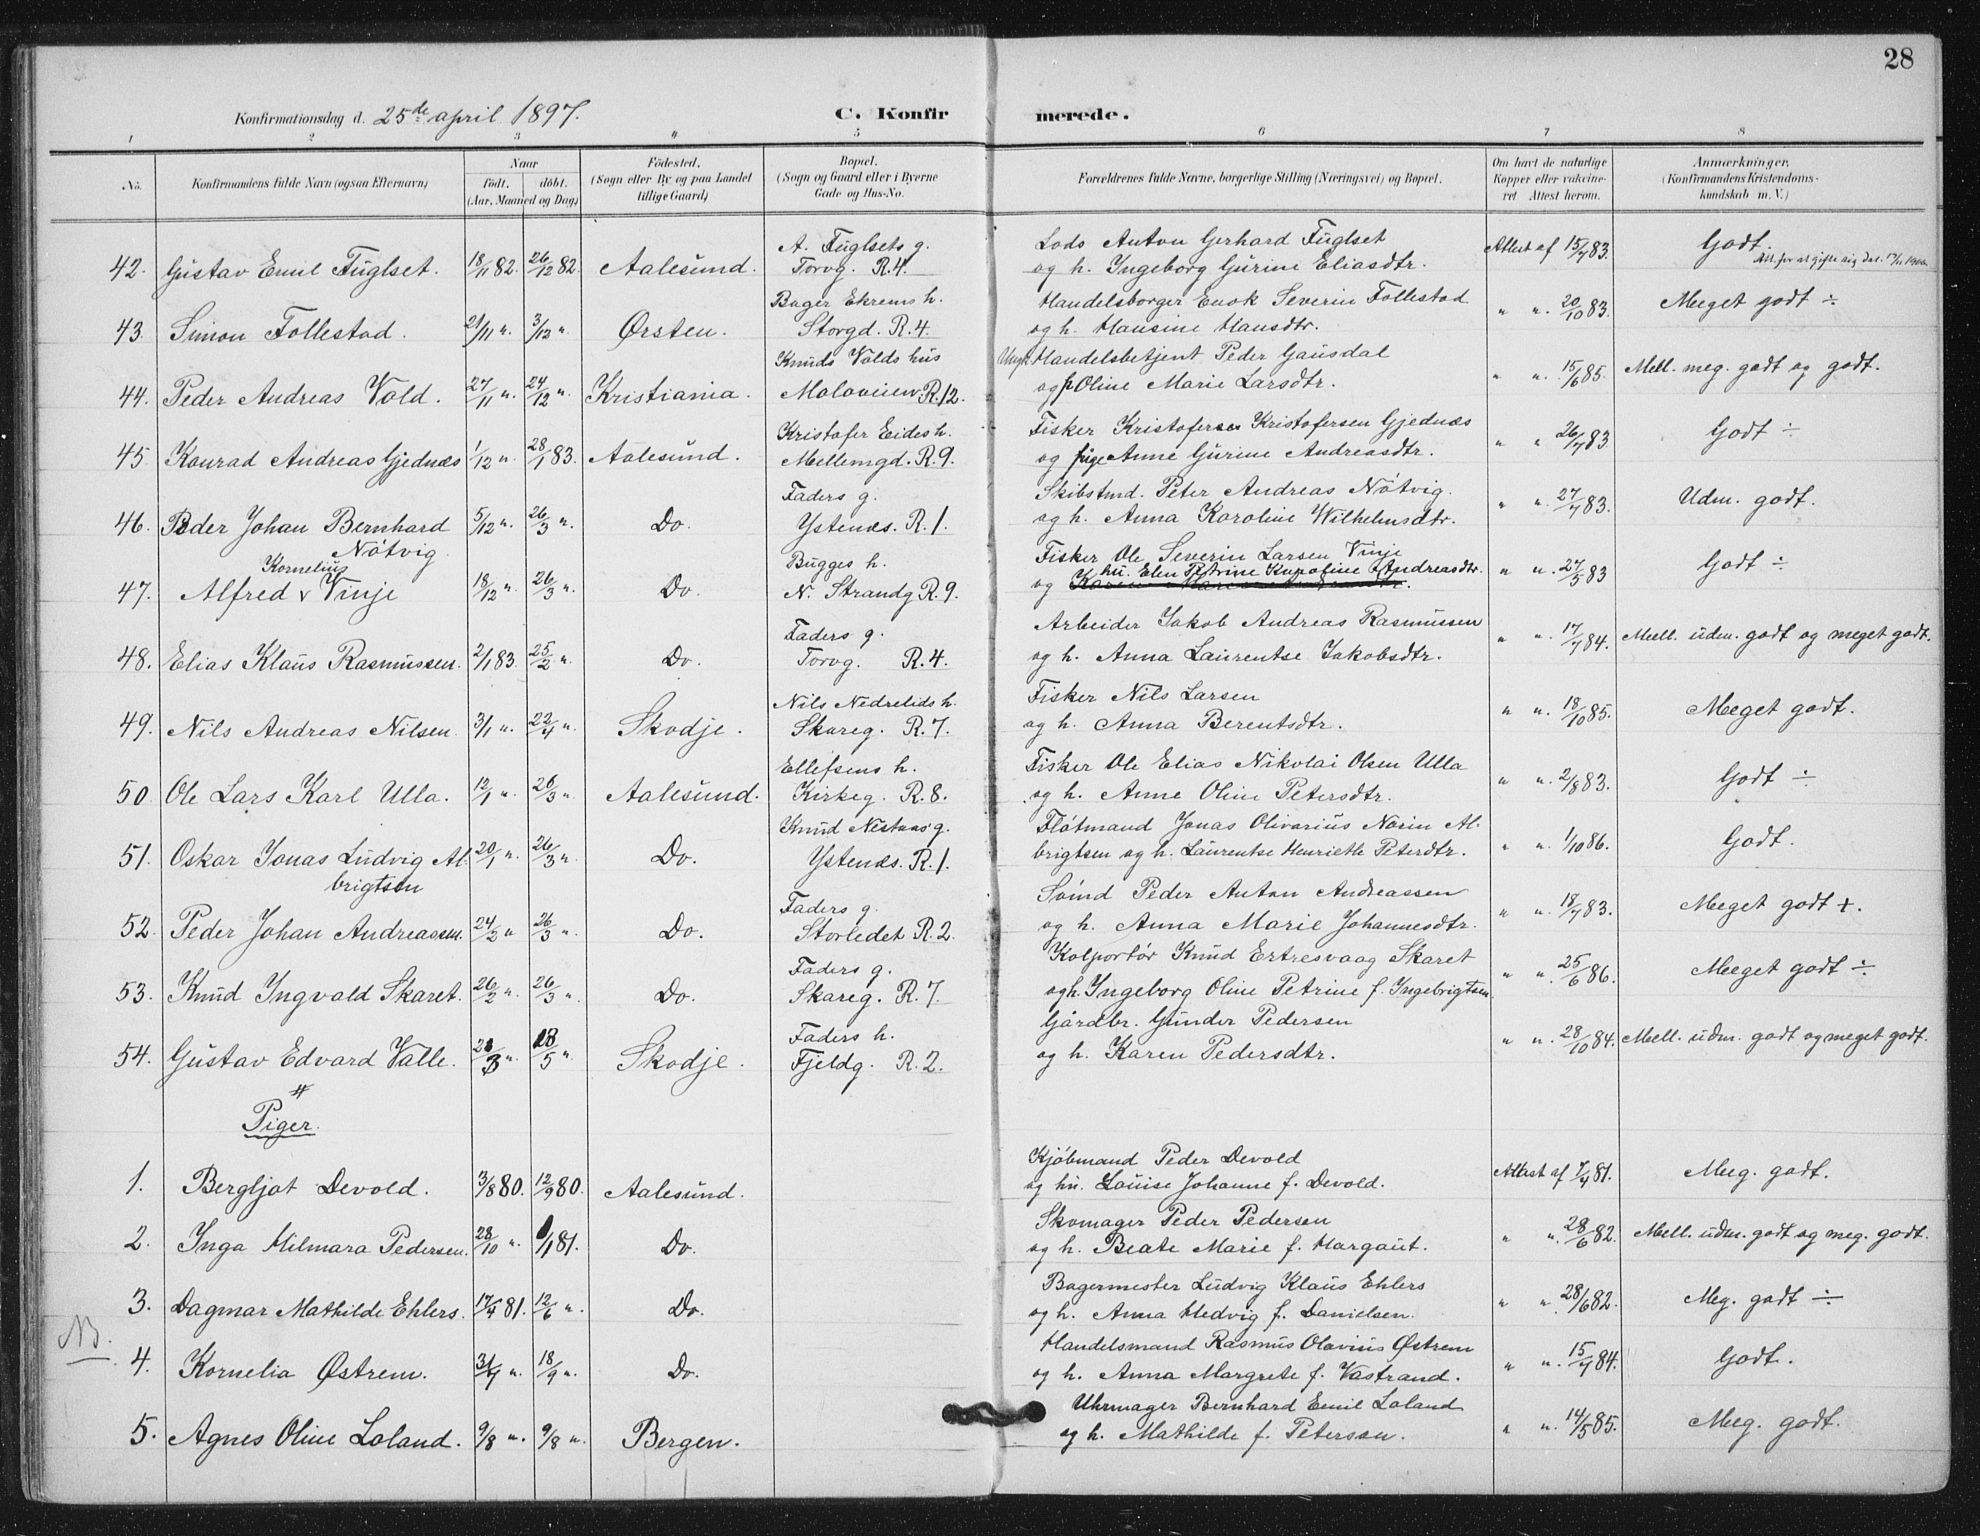 28
Konfirmationsdag d. 25de april 1897.
C. Konfirmerede.
1 2 3 4 5 6 7 8
No. Konfirmandens fulde Navn (ogsaa Efternavn) Naar födt. döbt. (Aar, Maaned og Dag) Födested. (Sogn eller By og paa Landet tillige Gaard) Bopæl. (Sogn og Gaard eller i Byerne Gade og Hus-No. Forældrenes fulde Navne, borgerlige Stilling (Næringsvei) og Bopæl. Om havt de naturlige Kopper eller vakcineret Attest herom. Anmærkninger. (Konfirmandens Kristendomskundskab m. V.)
A. Fuglsets g. Lods Anton Gerhard Fuglset
42. Gustav Emil Fuglset. 18/11 82. 26/12 82. Aalesund. Torvg. R. 4. og h. Ingeborg Gurine Eliasdtr. Attest af 15/7 83. Godt. Att. for at gifte sig
Bager Ekrems h. Handelsborger Enok Severin Follestad
43. Simon Follestad. 21/11 " 3/12 " Ørsten. Storgd. R. 4 og h. Hansine Hansdtr. " " 20/10 83. Meget godt ÷
Knuds Volds hus Ungk. Handelsbetjent Peder Gausdal
44. Peder Andreas Vold. 27/11 " 24/12 " Kristiania. Moloveien R. 12. og p Oline Marie Larsdtr. " " 15/6 85. Mell. meg. godt og godt.
Kristofer Eides h. Fisker Kristofersen Kristofersen Gjednæs
45. Konrad Andreas Gjednæs 1/12 " 28/1 83. Aalesund. Mellemgd. R. 9. og pige Anne Gurine Andreasdtr. " " 26/7 83 Godt ÷
Faders g. Skibstmd. Peter Andreas Nötvig.
46. Peder Johan Bernhard Nötvig. 5/12 " 26/3 " Do. Ystenæs. R. 1 og h. Anna Karoline Wilhelmsdtr. " " 27/7 83. Udm. godt.
Bugges h. Fisker Ole Severin Larsen Vinje
47. Alfred Kornelius Vinje 18/12 " 26/3 " Do. N. Strandg R. 9. og hu. Elen Petrine Karoline Andreasdtr. " " 27/5 83 Godt ÷
Faders g. Arbeider Jakob Andreas Rasmussen
48. Elias Klaus Rasmussen. 2/1 83. 25/2 " Do. Torvg. R. 4. og h. Anna Laurentse Jakobsdtr. " " 17/7 84. Mell. udm. godt og meget godt.
Nils Nedrelids h. Fisker Nils Larsen
49. Nils Andreas Nilsen 3/1 " 22/4 " Skodje. Skareg. R. 7. og h. Anna Berentsdtr. " " 18/10 85. Meget godt.
Ellefsens h. Fisker Ole Elias Nikolai Olsen Ulla
50. Ole Lars Karl Ulla. 12/1 " 26/3 " Aalesund. Kirkeg. R. 8. og h. Anne Oline Petersdtr. " " 2/8 83. Godt ÷
Knud Nestaas g. Flötmand Jonas Olivarius Norin Al-
51. Oskar Jonas Ludvig Albrigtsen 20/1 " 26/3 " Do. Ystenæs. R. 1. brigtsen og h. Laurentse Henriette Petersdtr. " " 1/10 86. Godt.
Faders g. Sömd Peder Anton Andreassen
52. Peder Johan Andreassen. 24/2 " 26/3 " Do. Storledet R. 2. og h. Anna Marie Johannesdtr. " " 18/7 83. Meget godt +.
Faders g. Kolportör Knud Ertresvaag Skaret
53. Knud Ingvald Skaret. 26/2 " 26/3 " Do. Skareg. R. 7. og h. Ingeborg Oline Petrine f. Ingebrigtsen " " 25/6 86. Meget godt ÷
Faders h. Gårdbr. Gunder Pedersen
54. Gustav Edvard Valle. " " Skodje. Fjeldg. R. 2. og h. Karen Pedersdtr. " " 28/10 84. Mell. udm. godt og meget godt.
Piger.
Kjöbmand Peder Devold
1. Bergljot Devold. 3/8 80. 12/9 80. Aalesund. og hu. Louise Johanne f. Devold. Attest af 7/4 81. Meg. godt.
Skomager Peder Pedersen
2. Inga Hilmara Pedersen. 28/10 " 81. Do. og h. Beate Marie f. Hargaut. " " 28/6 82. Mell. udm. godt og meg. godt.
Bagermester Ludvig Klaus Ehlers
3. Dagmar Mathilde Ehlers. 17/4 81. 12/6 " Do. og h. Anna Hedvig f. Danielsen. " " 28/6 82. Meg. godt ÷
NB. Handelsmand Rasmus Olavius Østrem
4. Kornelia Østrem. " 18/9 " Do. og h. Anna Margrete f. Vastrand. " " 15/7 84. Godt.
Uhrmager Bernhard Emil Loland
5. Agnes Oline Loland. 9/8 " 9/8 " Bergen. og h. Mathilde f. Petersen. " " 14/5 85. Meg. godt.